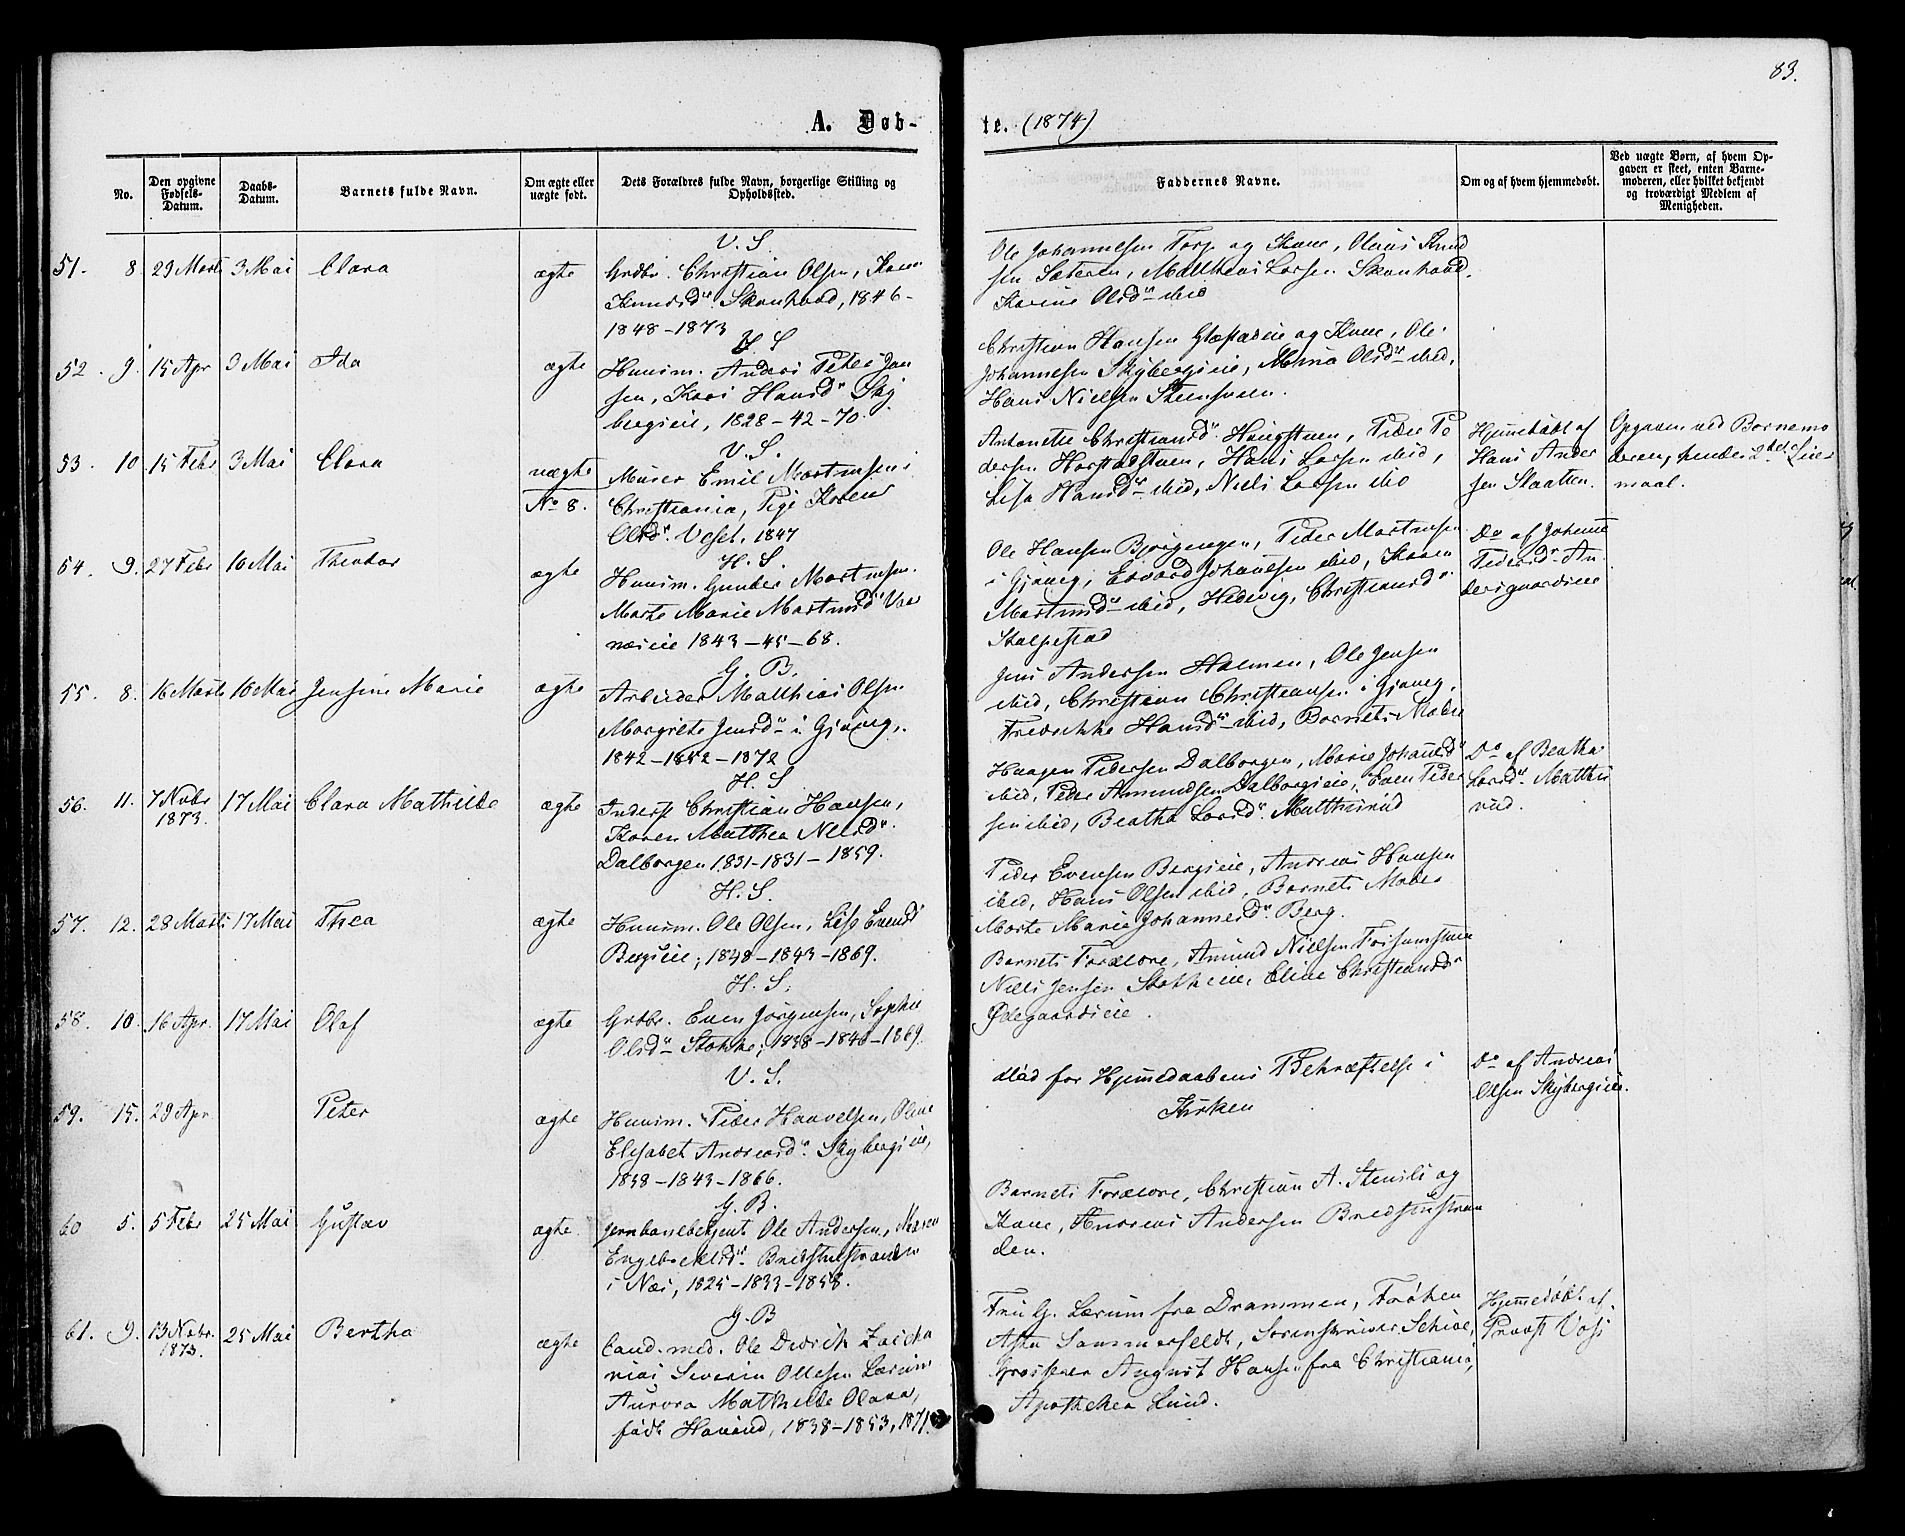 83.
A. Døb-
te. (1874)
No.
Den opgivne Fødsels-Datum.
Daabs-Datum.
Barnets fulde Navn.
Om ægte eller uægte født.
Dets Forældres fulde Navn, borgerlige Stilling og Opholdssted.
Faddernes Navne.
Om og af hvem hjemmedøbt.
Ved uægte Børn, af hvem Op-
gaven er skeet, enten Barne-
moderen, eller hvilket bekjendt
og troværdigt Medlem af
Menigheden.
51. 8. 29 Marts 3 Mai Clara ægte
V. S.
Grdbr. Christian Olsen, Karen
Knudsdr. 1846-
1848-1873
Ole Johannesen Torp og Kone, Olaus Knud
sen Sæteren, Matthias Larsen
Karine Olsdr ibid
52. 9. 15 Apr 3 Mai Ida ægte
V. S
Huusm. Anders Peter Jan
sen, Kari Hansdr Sky
bergseie, 1828-42-70.
Christian Hansen og Kone, Ole
Johannesen Skybergseie, Olsdr ibid,
Hans Nielsen Steensveen.
53. 10 15 Febr 3 Mai Clara uægte
No 8.
V. S.
Murer Emil Martinsen i
Christiania, Pige Karen
Olsdr. Veset, 1847
Antonette Christiansdr. Haugstuen, Peder Pe
dersen Harstadstuen, Hans Larsen ibid,
Lisa Hansdr ibid, Niels Larsen ibid
Hjemmedøbt af
Hans Ander
sen Slaatten.
Opgaven ved Barnemo
deren, hendes 2det Leier
maal.
54. 9. 27 Febr 10 Mai Theodor ægte
H. S.
Huusm. Gunder Martinsen,
Marte Marie Martinsdr
1843-45-68.
Ole Hansen Bjørgengen, Peder Martinsen
i Gjøvig, Edvard Johansen ibid, Karen
Martinsdr ibid, Hedevig Christiansdr
Stalpestad
Do af Johanne
Pedersdr An
dersgaardseie
55. 8. 16 Marts 10 Mai Jensine Marie ægte
G. B.
Arbeider Matthias Olsen
Margrete Jensdr i Gjøvig,
1842-1852-1872
Jens Andersen Holmen, Ole Jensen
ibid, Christian Christiansen i Gjøvig,
Fredrikke Hansdr ibid, Barnets Moder
56. 11. 7 Novbr 1873. 17 Mai Clara Mathilde ægte
H. S
Inderst Christian Hansen,
Karen Matthea Nilsdr.
Dalborgen 1831-1831-1859.
Haagen Pedersen Dalborgen, Marie Johansdr
ibid, Peder Amundsen Dalborgseie, Even Peder
sen ibid, Beatha Larsdr. Matthisrud
Do af Beatha
Larsdr. Matthis
rud.
57. 12. 28 Marts 17 Mai Thea ægte
H. S.
Huusm. Ole Olsen, Lisa Evensdr
Bergseie, 1848-1843-1869.
Peder Evensen Bergseie, Andreas Hansen
ibid, Hans Olsen ibid, Barnets Moder
Marte Marie Johannesdr. Berg.
58. 10. 16 Apr. 17 Mai Olaf ægte
H. S.
Grdbr. Even Jørgensen, Sophie
Olsdr Stokke, 1838-1840-1869.
Barnets Forældre, Amund Nielsen
Niels Jensen Stokkeie, Eline Christiansdr
Ødegaardseie.
59. 15. 29 Apr. Peter ægte
V. S.
Huusm. Peder Haavelsen, Oline
Elisabet Andreasdr. Skybergseie,
1838-1843-1866.
død før Hjemmedaabens Bekræftelse i
Kirken
Do af Andreas
Olsen Skybergseie.
60 5. 5 Febr 25 Mai Gustav ægte
G. B.
Jernbanebetjent Ole Andersen, Maren
Engebretsdr. Bredstustranden
i Næs, 1825-1833-1858.
Barnets Forældre, Christian A. Stensli og
Kone, Andreas Andersen Bredstustran
den.
61. 9. 13 Novbr. 1873. 25 Mai Bertha ægte
G. B
Cand. med. Ole Didrik Zacha
rias Severin Ottesen Lærum
Aurora Mathilde Olava,
født Hovind, 1838-1853, 1871.
Fru G. Lærum fra Drammen, Frøken
Asta Sommerfeldt, Sorenskriver Schiøe,
Grosserer August Hansen fra Christiania,
Apotheker Lund.
Hjemmedøbt af
Provst Voss